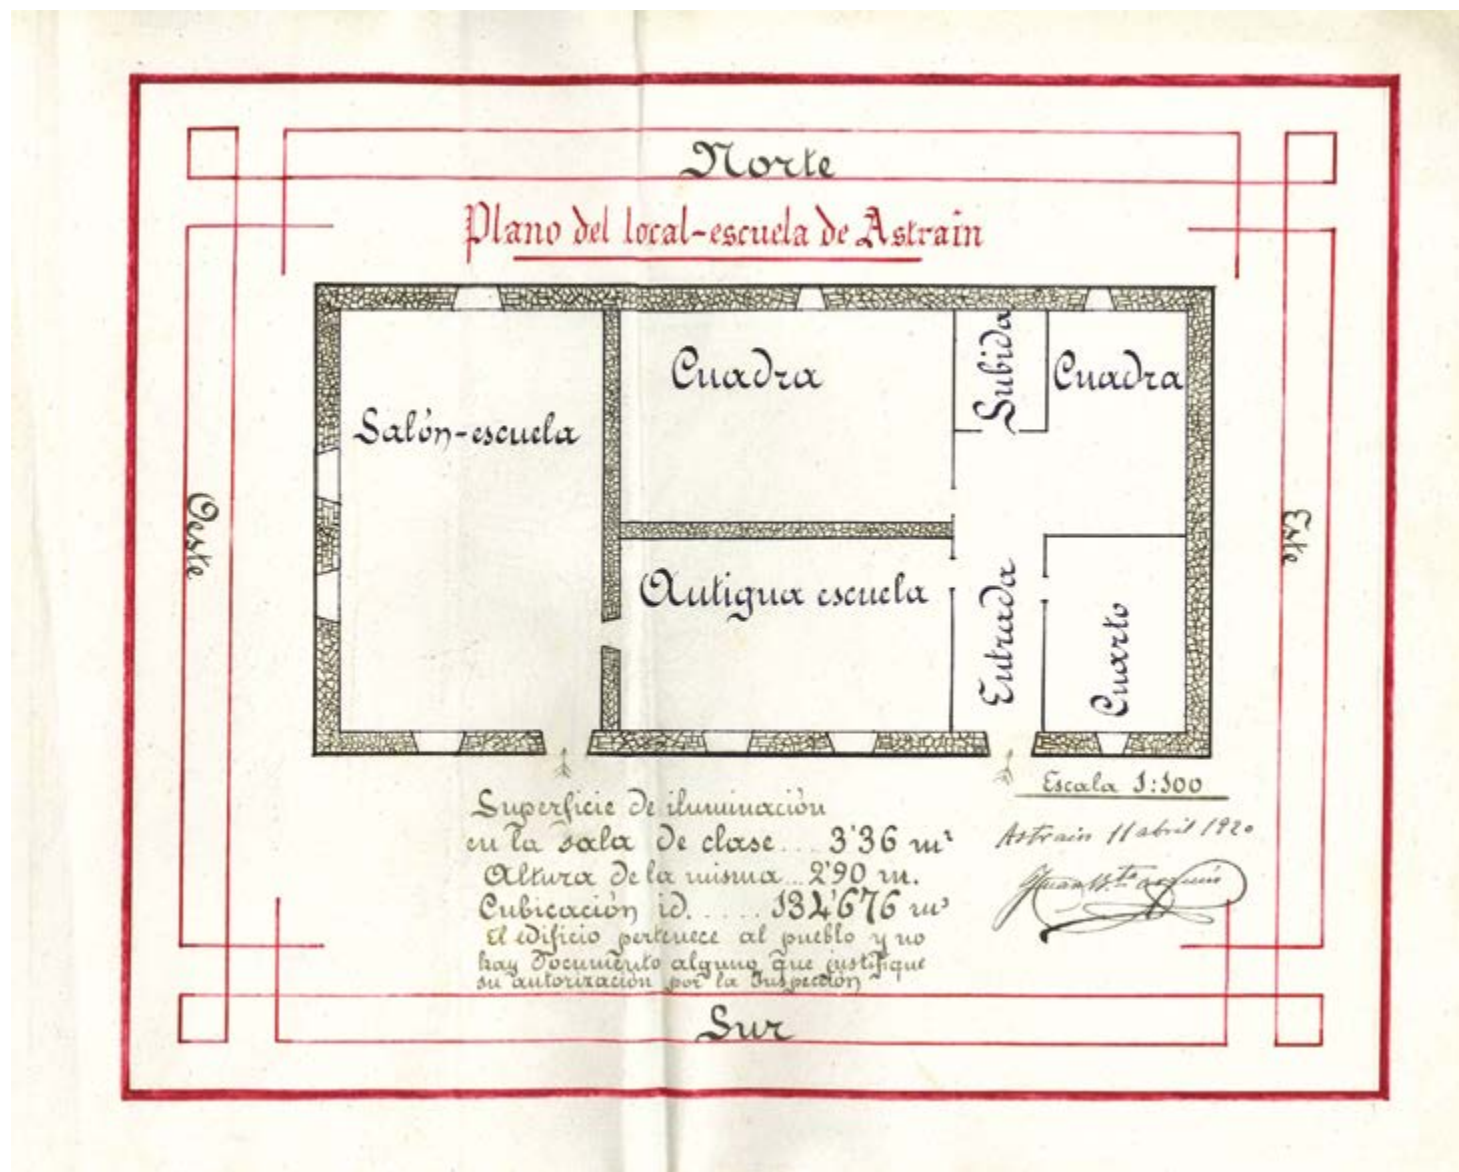 Norte
Plano del local-escuela de Astrain
Cuadra
Subida
Cuadra
Salón-escuela
Oeste
Este
Antigua escuela
Entrada
Cuarto
Escala 1:100
Superficie de iluminación
en la sala de clase.... 3'36 m²
Altura de la misma... 2'90 m.
Cubicación id. ..... 134'676 m³
El edificio pertenece al pueblo y no
hay documento alguno que justifique
su autorización por la Inspección
Astrain 11 abril 1920
Juan B.ta
Sur